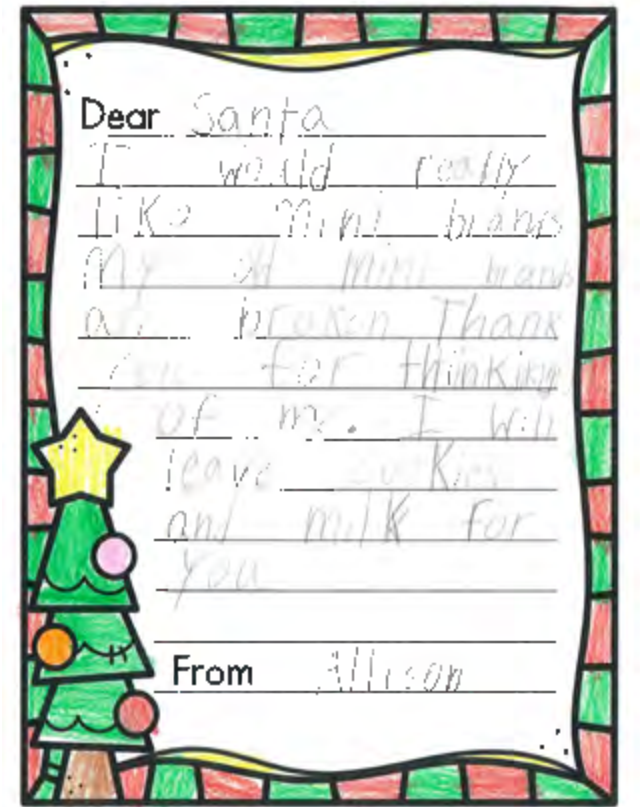 Dear Santa
I would really
like mini brands
My old mini brands
are broken Thank
You for thinking
of me. I will
leave cookies
and milk for
you
From Allison